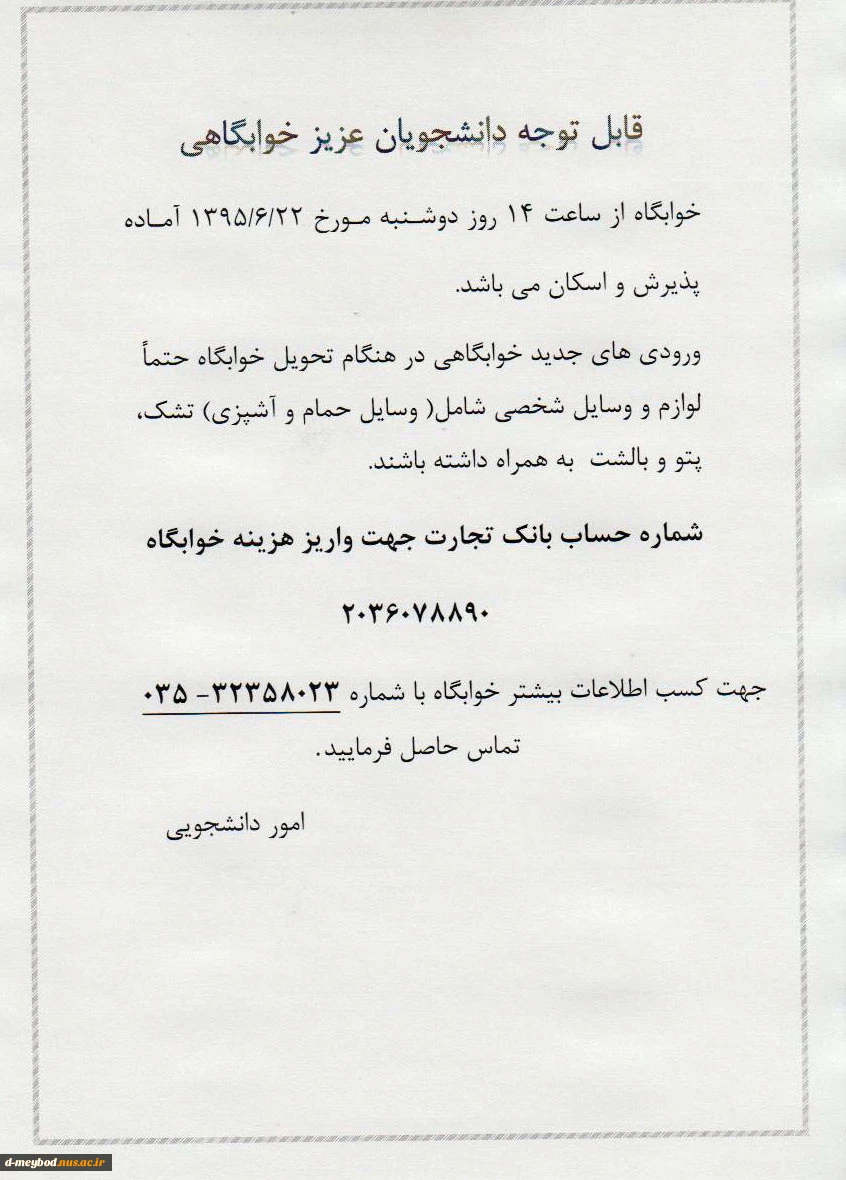 قابل توجه دانشجویان عزیز خوابگاهی
خوابگاه از ساعت ۱۴ روز دوشنبه مورخ ۱۳۹۵/۶/۲۲ آماده
پذیرش و اسکان می باشد.
ورودی های جدید خوابگاهی در هنگام تحویل خوابگاه حتماً
لوازم و وسایل شخصی شامل( وسایل حمام و آشپزی) تشک،
پتو و بالشت به همراه داشته باشند.
شماره حساب بانک تجارت جهت واریز هزینه خوابگاه
۲۰۳۶۰۷۸۸۹۰
جهت کسب اطلاعات بیشتر خوابگاه با شماره ۳۲۳۵۸۰۲۳- ۰۳۵
تماس حاصل فرمایید.
امور دانشجویی
d-meybod.nus.ac.ir